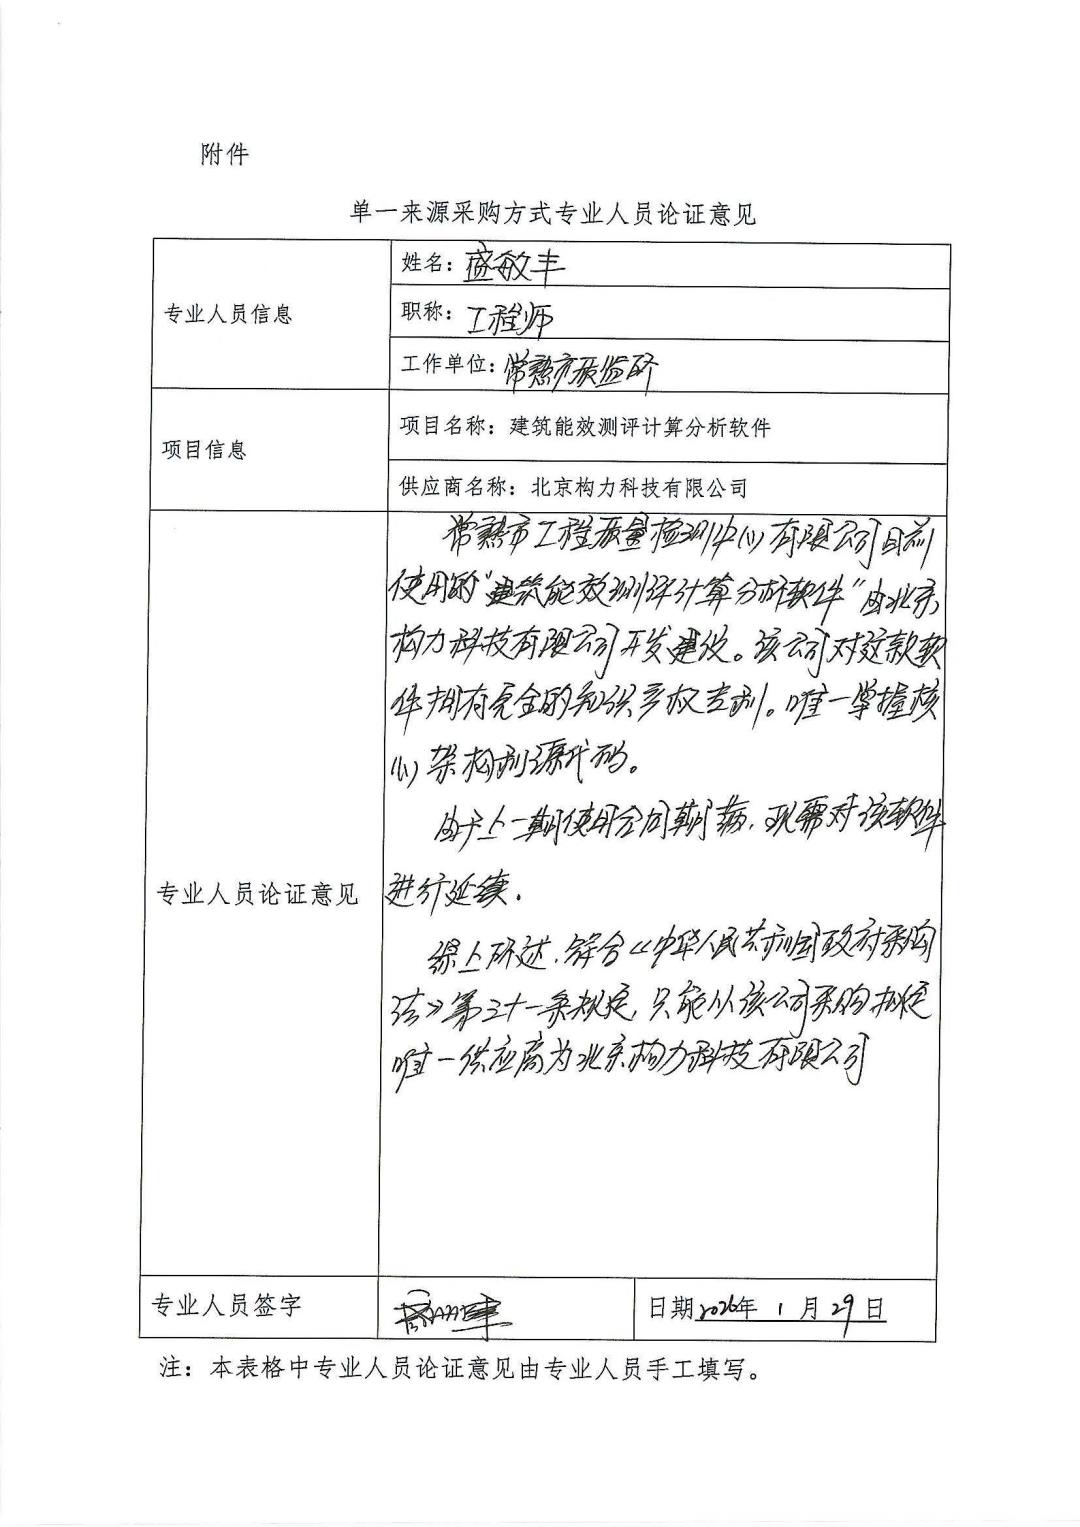 附件
单一来源采购方式专业人员论证意见
专业人员信息
姓名：盛敏丰
职称：工程师
工作单位：常熟市质监所
项目信息
项目名称：建筑能效测评计算分析软件
供应商名称：北京构力科技有限公司
专业人员论证意见
常熟市工程质量检测中心有限公司目前
使用的“建筑能效测评计算分析软件”由北京
构力科技有限公司开发建设。该公司对这款软
件拥有完全的知识产权专利。唯一掌握核
心架构和源代码。
由于上一期使用合同期满，现需对该软件
进行延续。
综上所述，符合《中华人民共和国政府采购
法》第三十一条规定，只能从该公司采购拟定
唯一供应商为北京构力科技有限公司
专业人员签字
日期2026年 1 月 29 日
注：本表格中专业人员论证意见由专业人员手工填写。